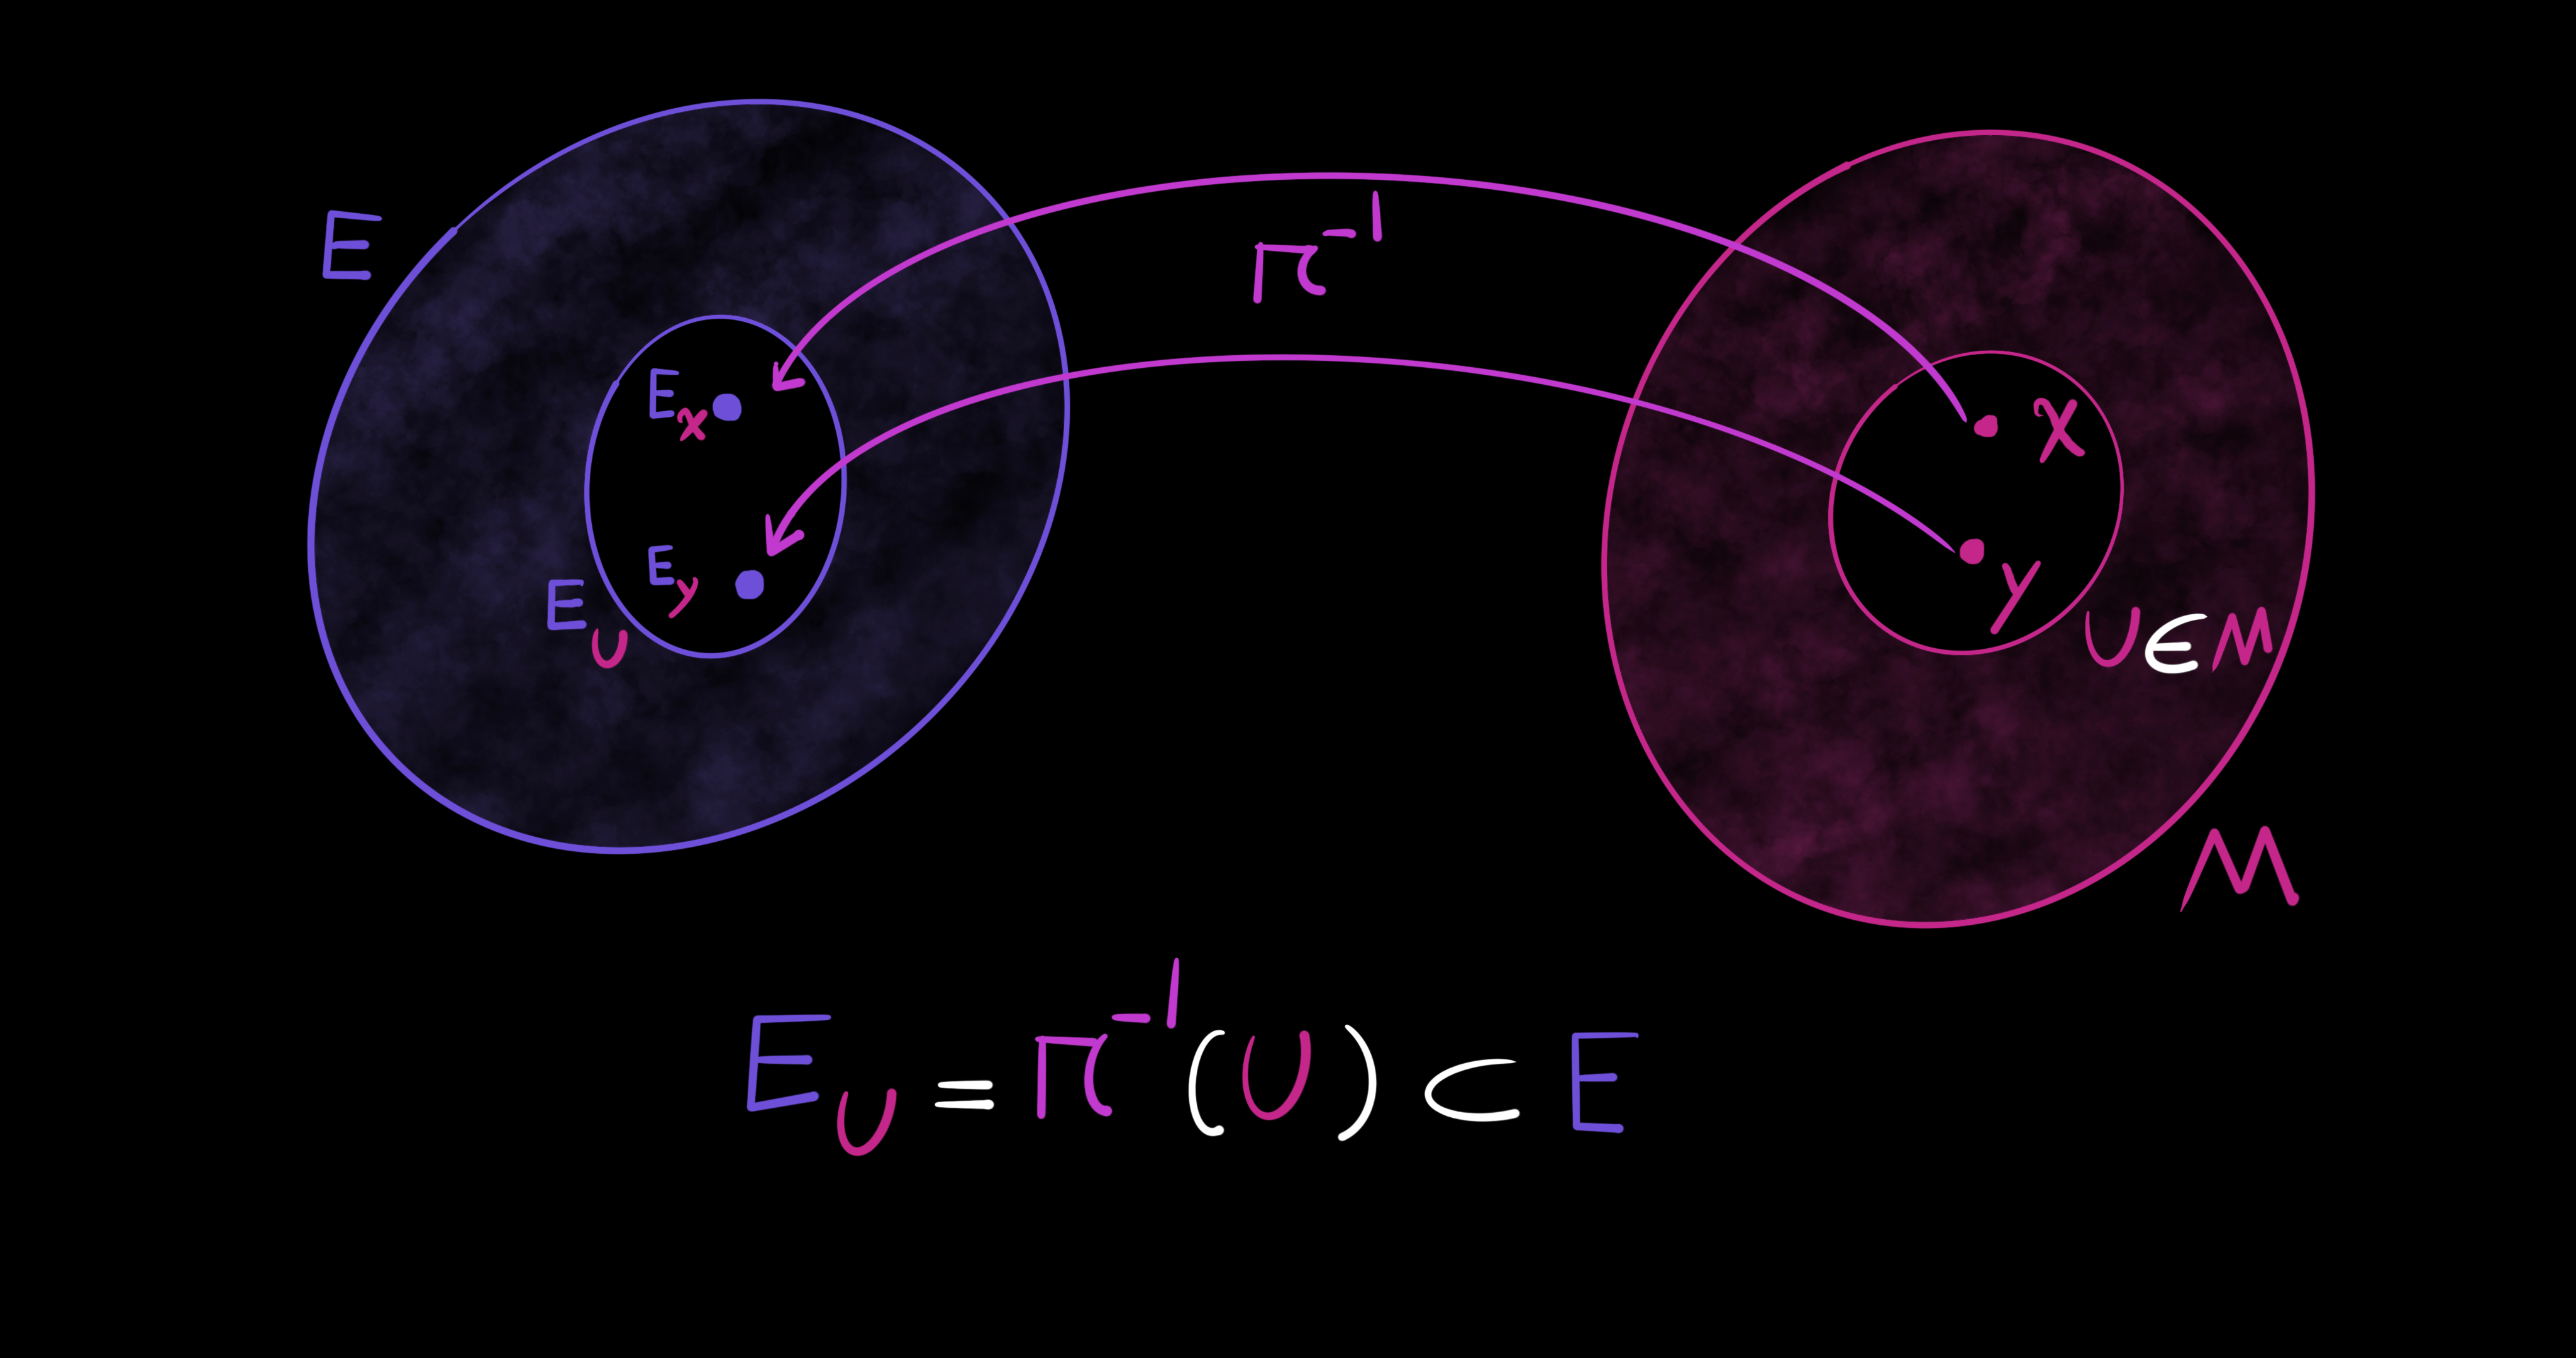 E
π⁻¹
Eₓ
x
E_y
y
E_U
U ∈ M
M
E_U = π⁻¹(U) ⊂ E